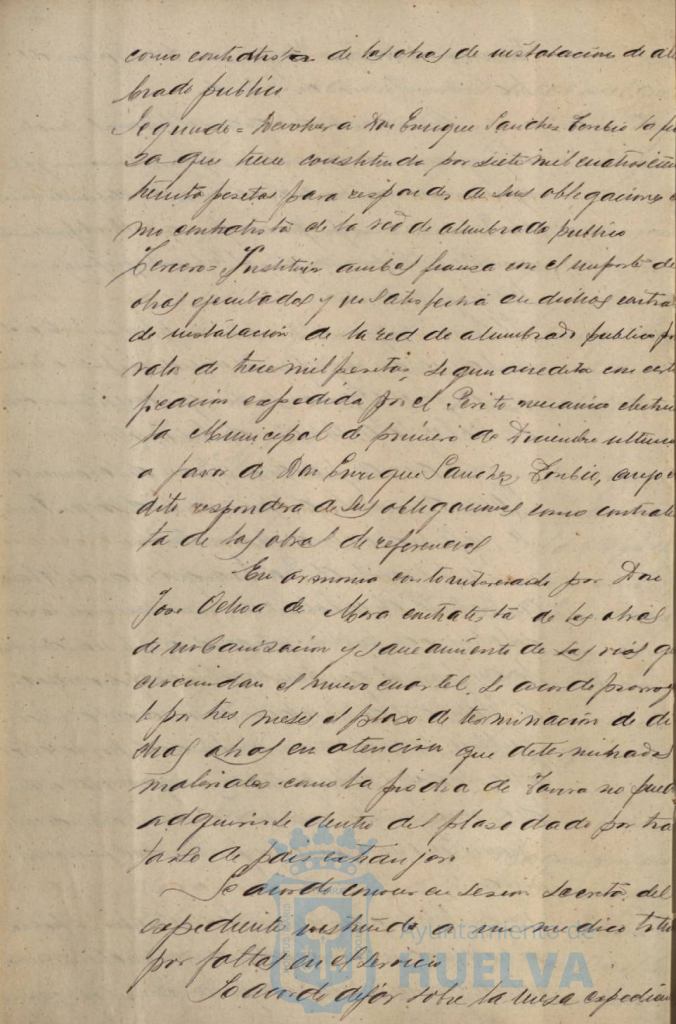 como contratista de las obras de instalacion de al
brado publico
Segundo = Devolver á Don Enrique Sanchez Toribio la fia
za que tiene constituida por siete mil cuatrocien
treinta pesetas para responder de sus obligaciones
mo contratista de la red de alumbrado publico
Tercero = Sustituir ambas fianza con el importe de
obras ejecutadas y no satisfecha en dichas contra
de instalación de la red de alumbrado publico po
valor de trece mil pesetas, segun acredita con certi
ficacion expedida por el Perito mecanico electri
ta Municipal de primero de Diciembre ultimo
a favor de Don Enrique Sanchez Toribio, cuyo
dito respondera de sus obligaciones como contrat
ta de las obras de referencias
En armonia con lo interesado por Don
Jose Ochoa de Mora contratista de las obras
de urbanizacion y saneamiento de las vias q
circundan el nuevo cuartel, se acordó prorrog
lo por tres meses el plaso de terminación de di
chas obras en atencion que determinados
materiales como la piedra de Tavira no pued
adquirirse dentro del plaso dado por tra
tarse de pais extranjero
Se acordo conocer en sesion secreta del
expediente instruido a un medico titu
por faltas en el servicio
Se acordo dejar sobre la mesa expedien
Ayuntamiento de
HUELVA